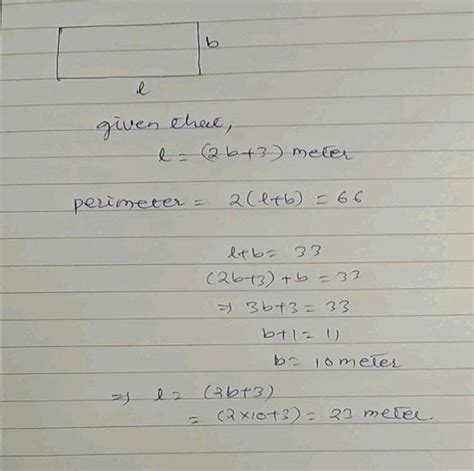 b
l
given that,
l = (2b+3) meter
perimeter = 2(l+b) = 66
l+b = 33
(2b+3)+b = 33
⇒ 3b+3 = 33
b+1 = 11
b = 10 meter
⇒ l = (2b+3)
= (2×10+3) = 23 meter.